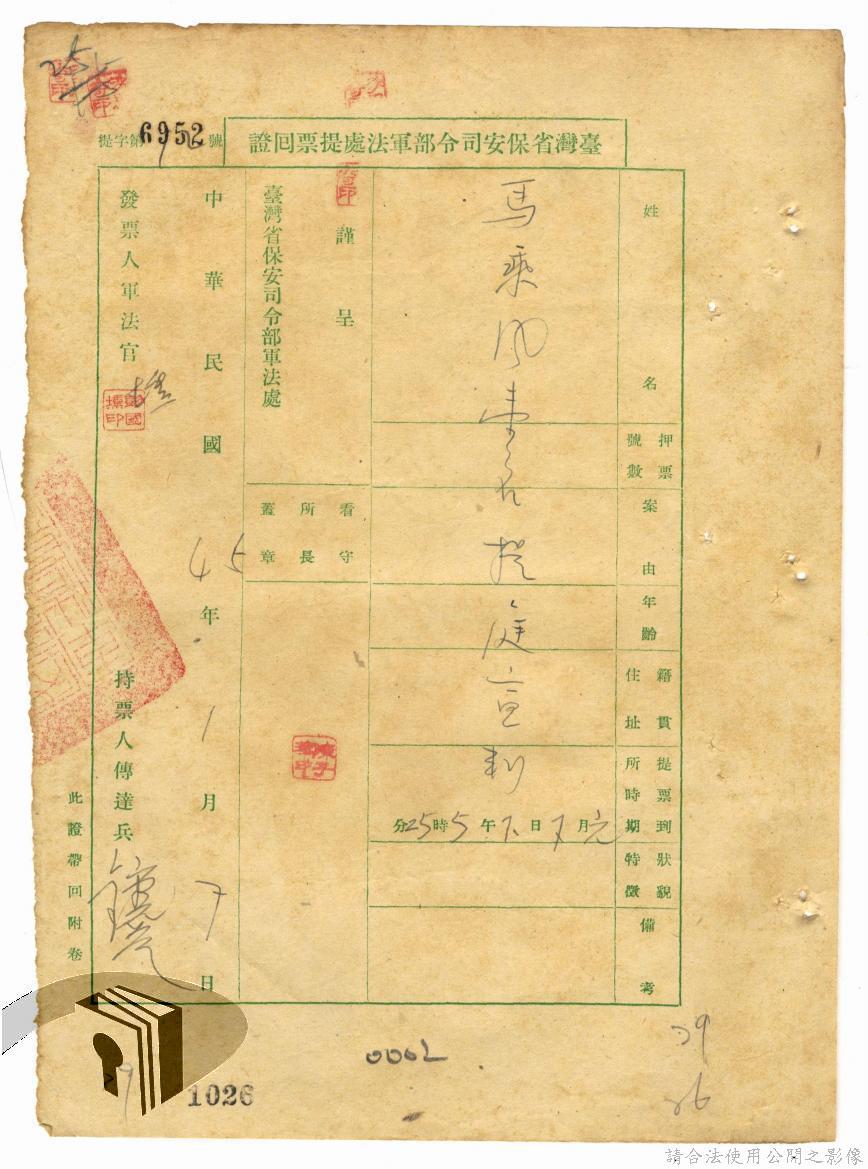 提字第6952號
臺灣省保安司令部軍法處提票回證
姓名
馬乘風壹名提庭宣判
押票號數
案由
年齡
籍貫住址
提票到所時期
元月7日下午5時25分
狀貌特徵
備考
謹呈
臺灣省保安司令部軍法處
看守所長蓋章
中華民國45年1月7日
發票人軍法官
持票人傳達兵
此證帶回附卷
0062
1026
29
26
請合法使用公開之影像